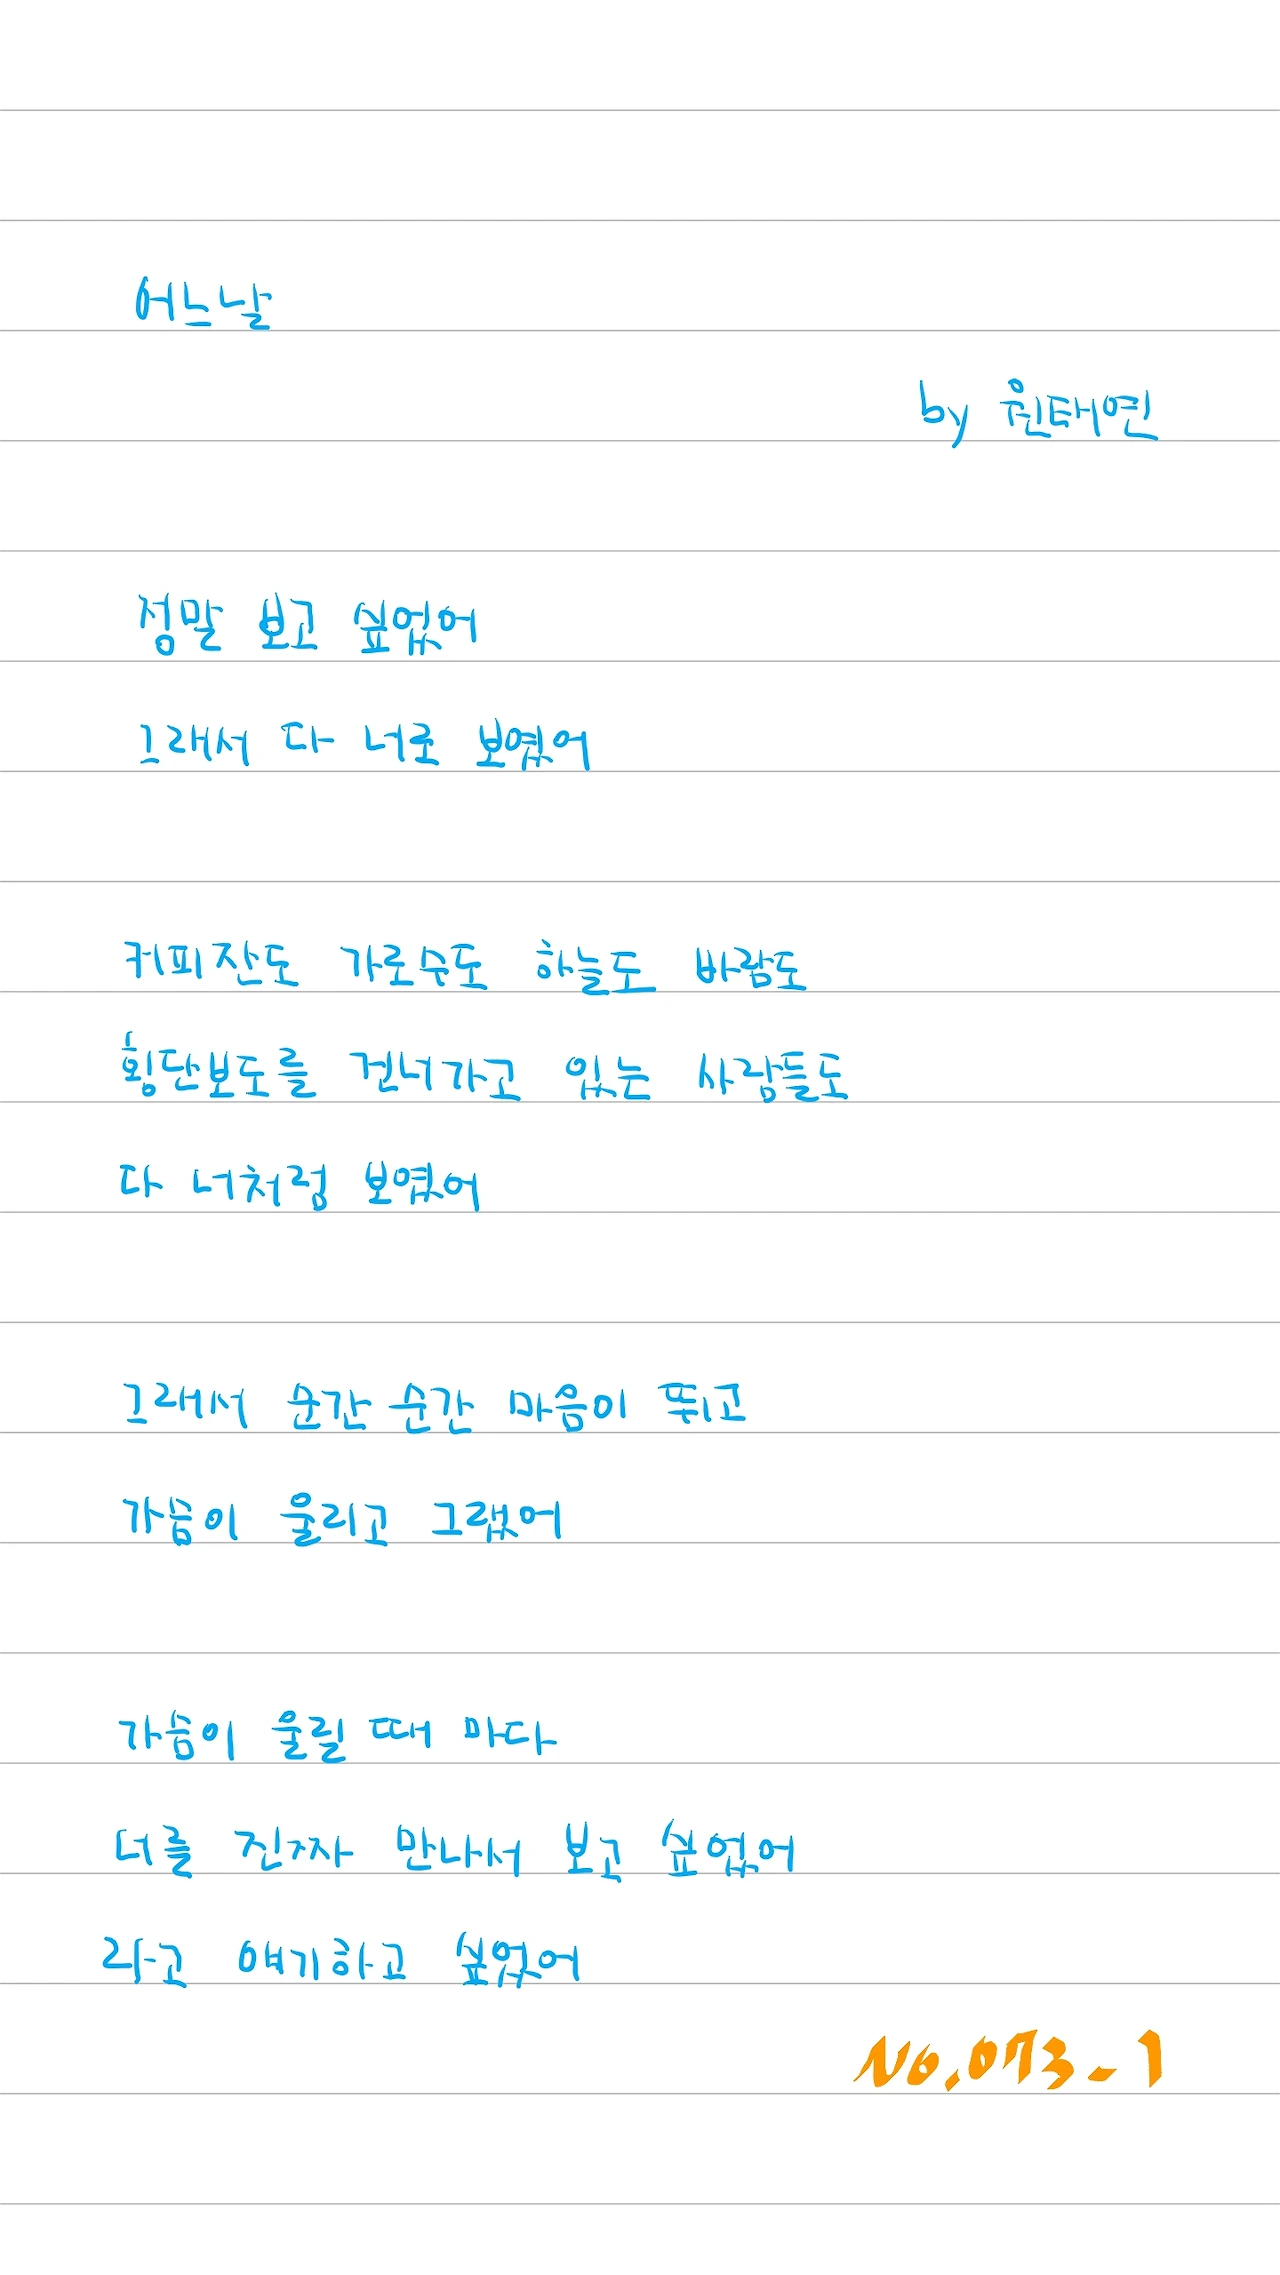 어느날
by 원태연
정말 보고 싶었어
그래서 다 너로 보였어
커피잔도 가로수도 하늘도 바람도
횡단보도를 건너가고 있는 사람들도
다 너처럼 보였어
그래서 순간 순간 마음이 뛰고
가슴이 울리고 그랬어
가슴이 울릴 때 마다
너를 진짜 만나서 보고 싶었어
라고 얘기하고 싶었어
No.073-1